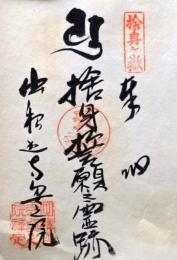 捨身ヶ嶽
奉納
捨身誓願之霊跡
出釈迦寺奥之院